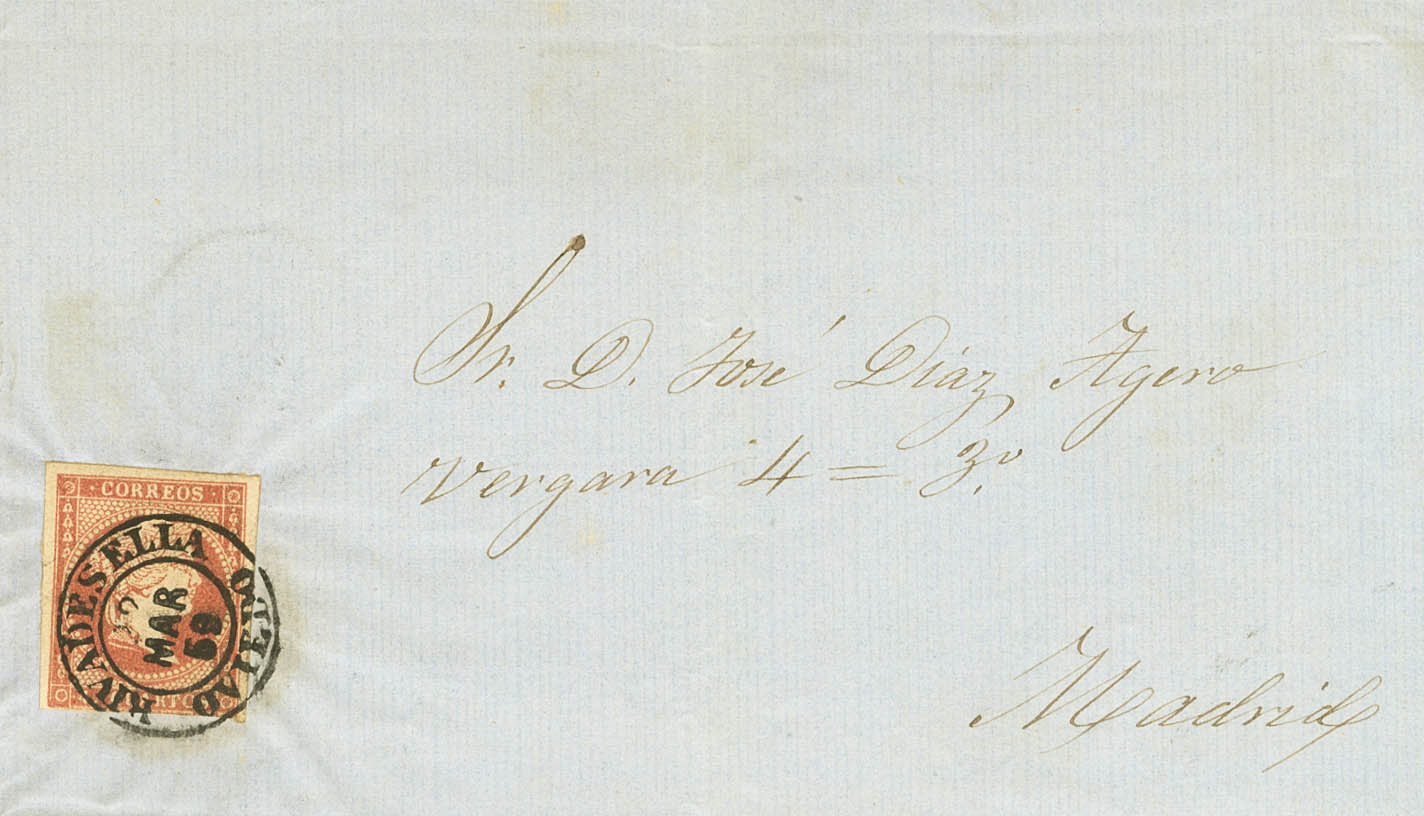 Sr. D. José Díaz Agero
Vergara 4 = 3º.
Madrid
CORREOS
RIVADESELLA
MAR
59
OVIEDO